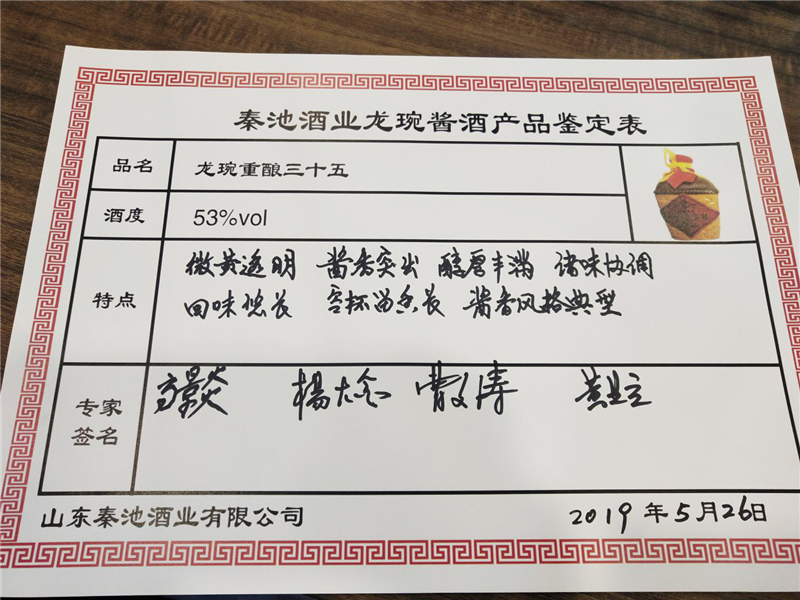 秦池酒业龙琬酱酒产品鉴定表
品名 龙琬重酿三十五
酒度 53%vol
特点
微黄透明 酱香突出 醇厚丰满 诸味协调
回味悠长 空杯留香长 酱香风格典型
专家
签名
杨大金 曹文涛
山东秦池酒业有限公司 2019年5月26日